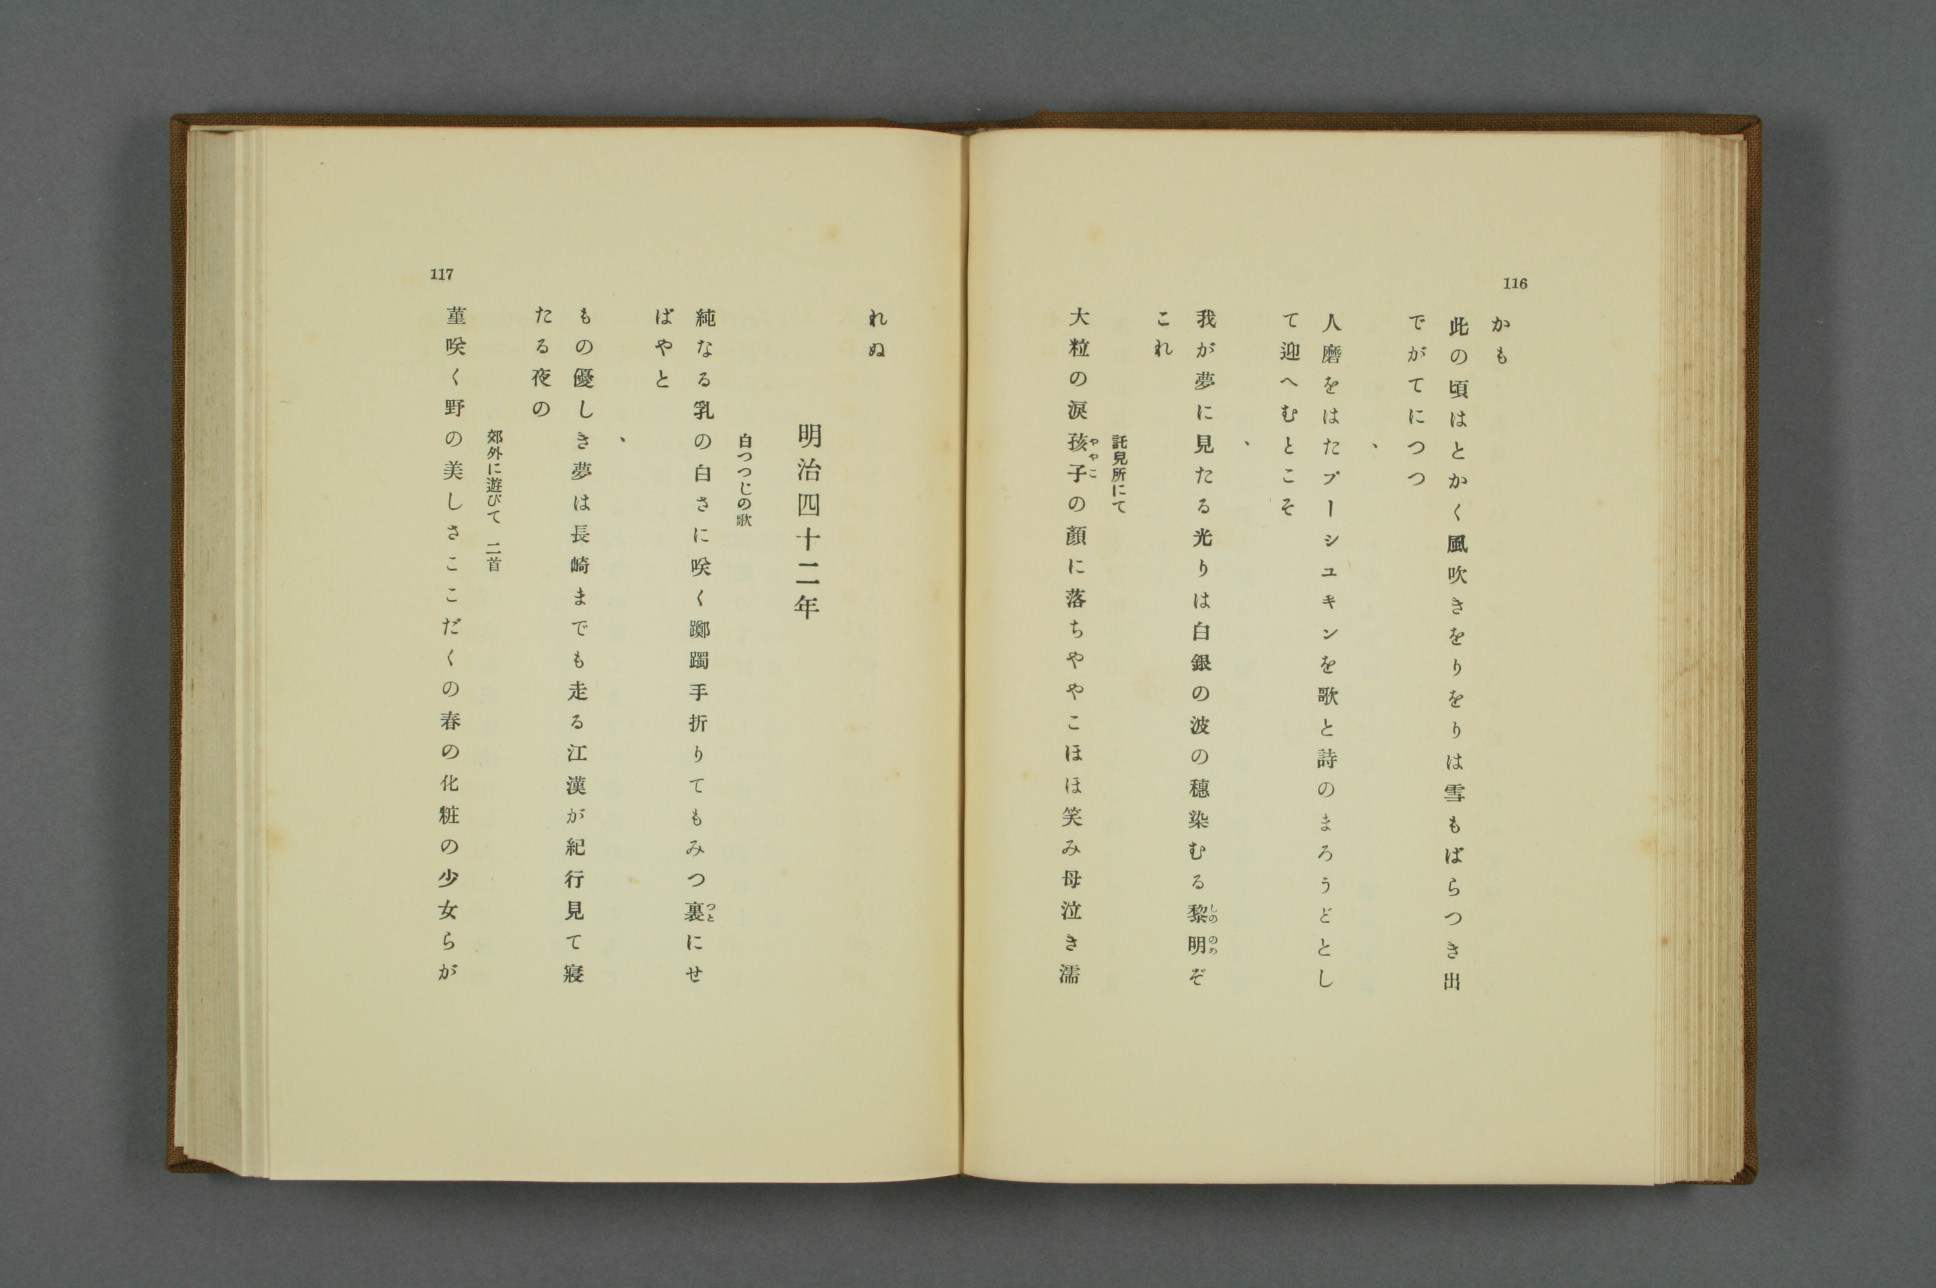 116
かも
此の頃はとかく風吹きをりをりは雪もばらつき出
でがてにつつ
、
人磨をはたプーシユキンを歌と詩のまろうどとし
て迎へむとこそ
、
我が夢に見たる光りは白銀の波の穗染むる黎明ぞ
しののめ
これ
託児所にて
大粒の涙孩子の顔に落ちややこほほ笑み母泣き濡
ややこ
117
れぬ
明治四十二年
白つつじの歌
純なる乳の白さに咲く躑躅手折りてもみつ裏にせ
つと
ばやと
、
もの優しき夢は長崎までも走る江漢が紀行見て寢
たる夜の
郊外に遊びて 二首
菫咲く野の美しさここだくの春の化粧の少女らが